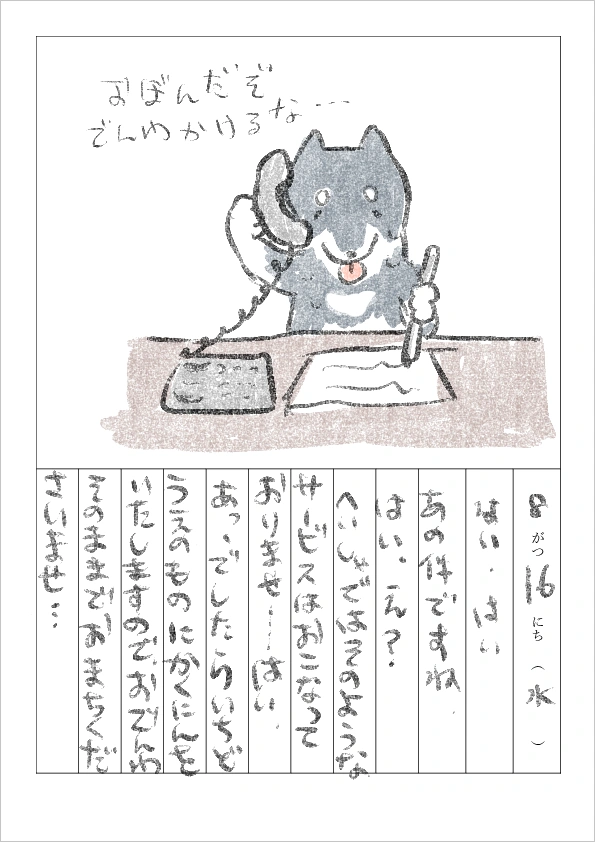 おぼんだぞ
でんわかけるな…
8がつ16にち(水)
はい、はい
あの件ですね、
はい、え?
へいしゃではそのような
サービスはおこなって
おりませ……はい、
あっ、でしたらいちど
うえのものにかくにんを
いたしますので、おでんわ
そのままでおまちくだ
さいませ…